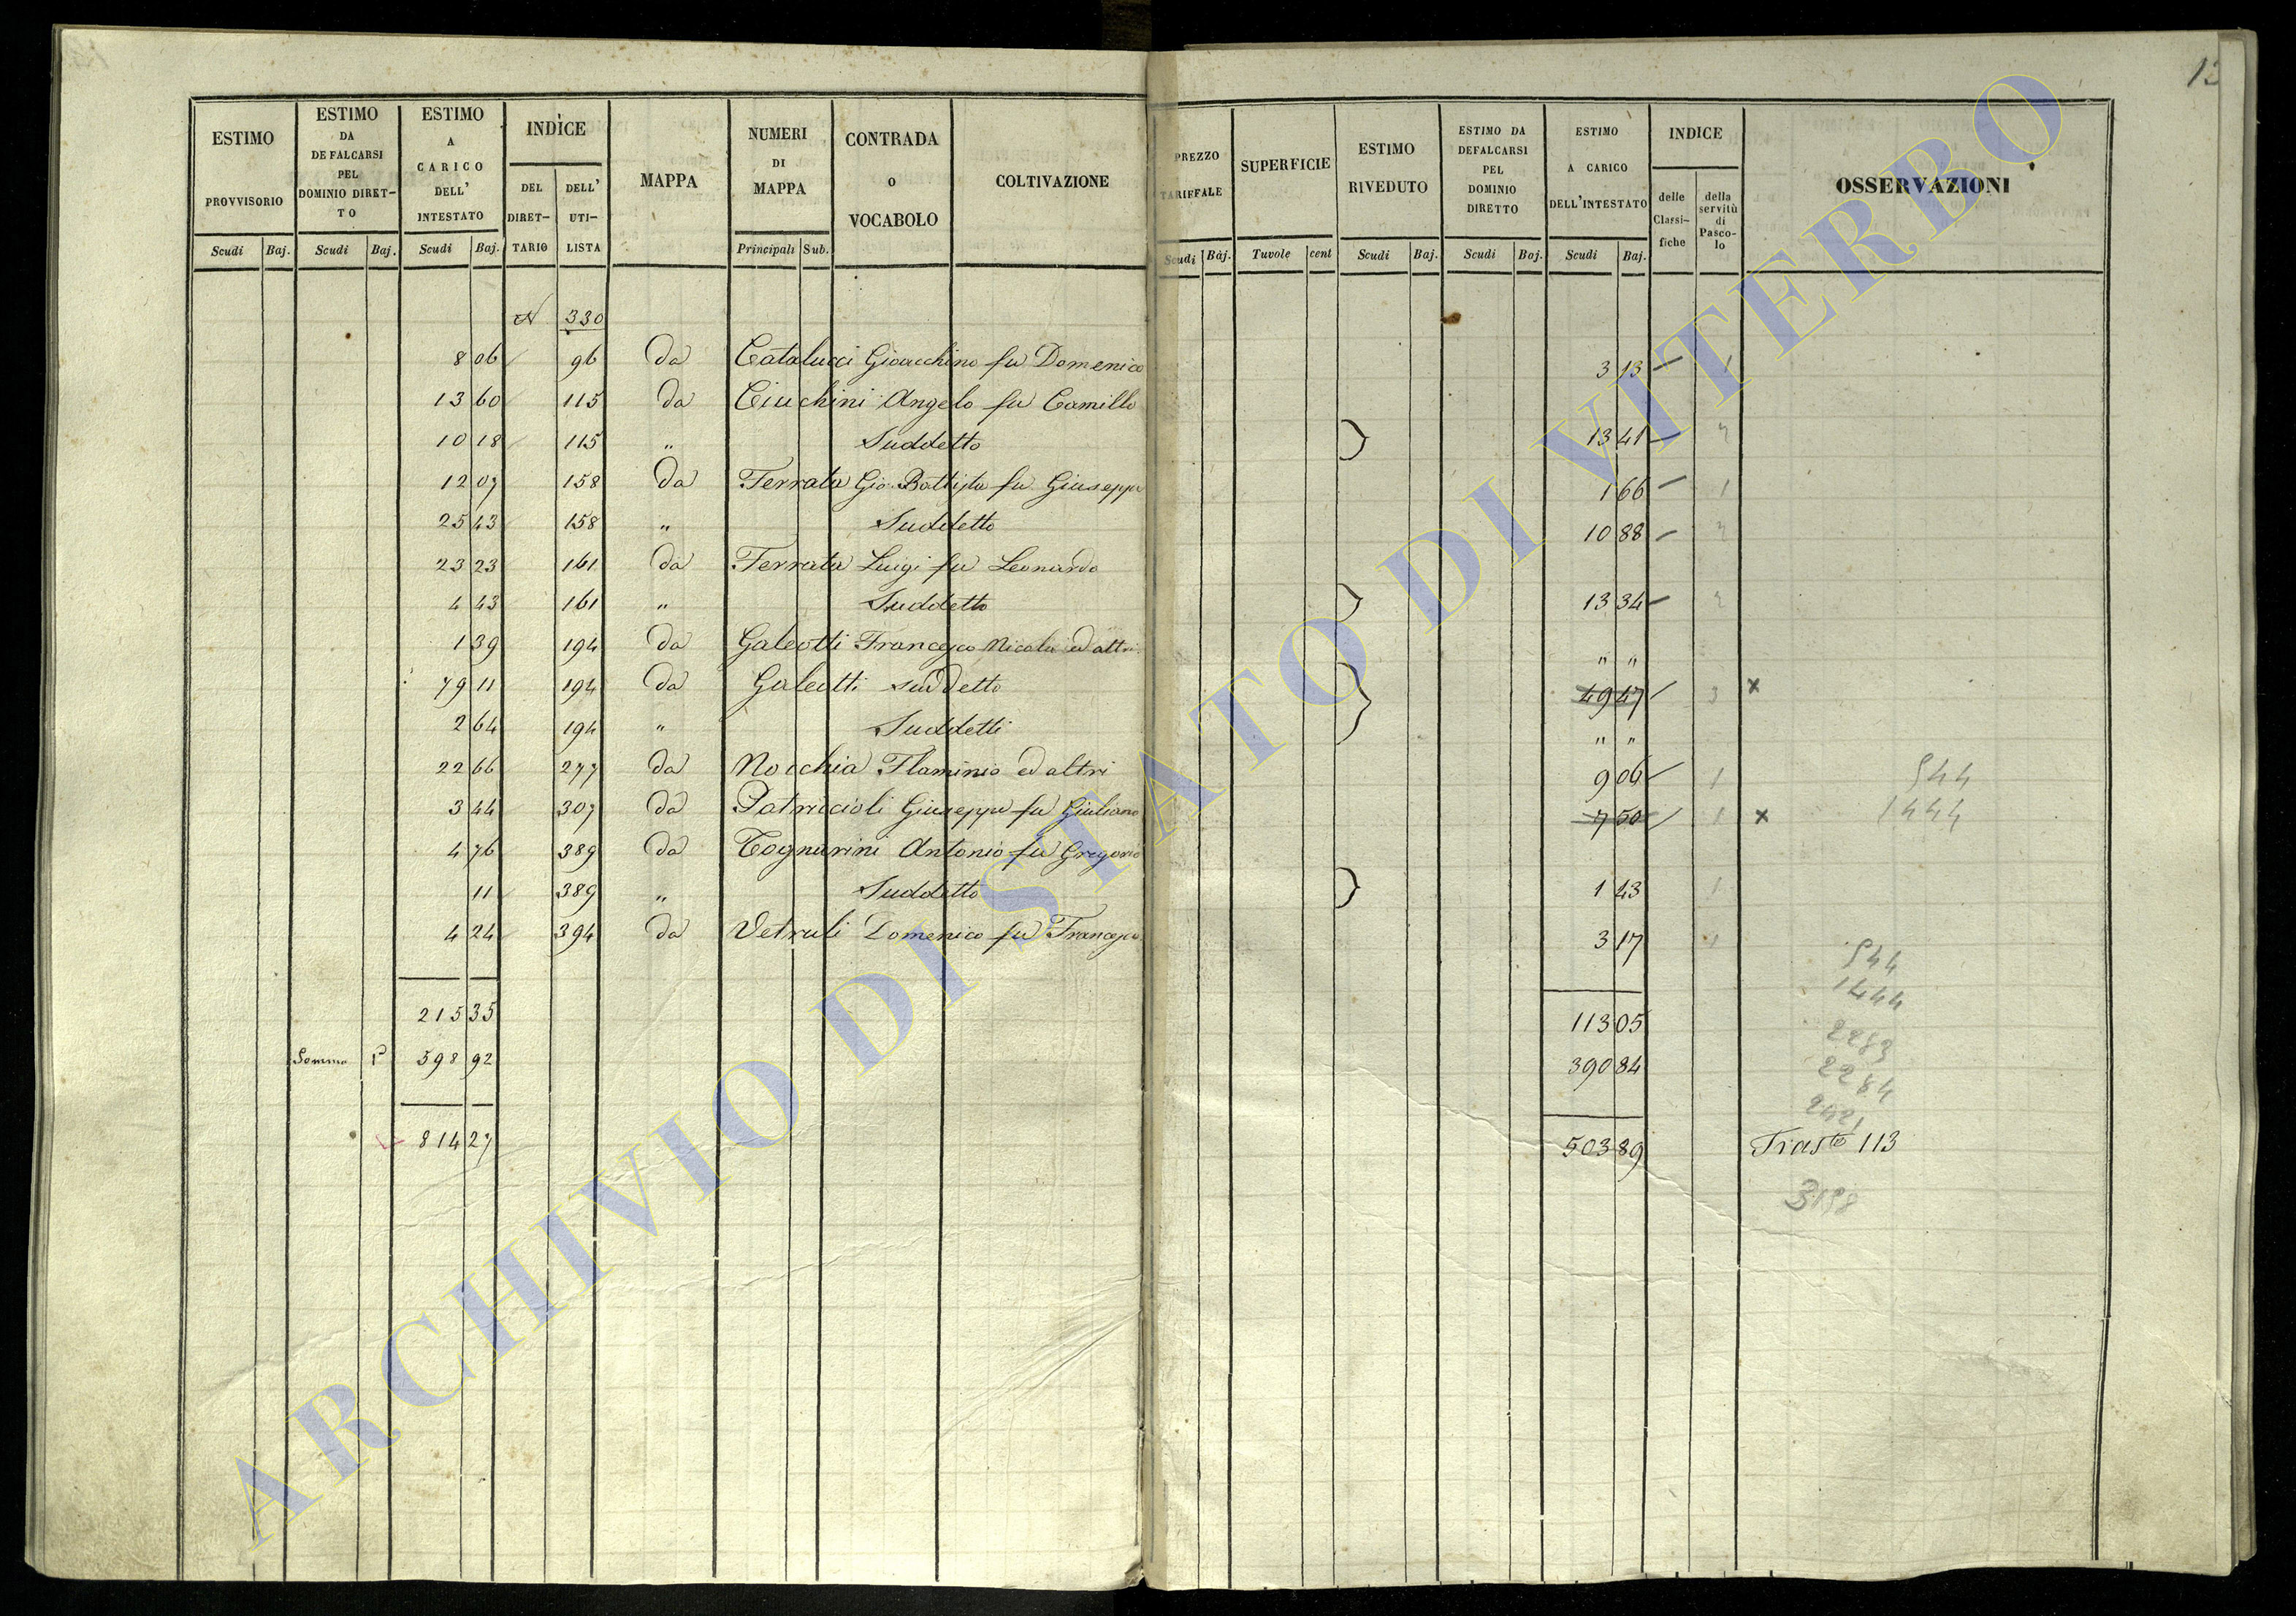 12
ESTIMO PROVVISORIO Scudi Baj.
ESTIMO DA DEFALCARSI PEL DOMINIO DIRET-TO Scudi Baj.
ESTIMO A CARICO DELL' INTESTATO Scudi Baj.
INDICE DEL DIRET-TARIO DELL' UTI-LISTA
MAPPA
NUMERI DI MAPPA Principali Sub.
CONTRADA O VOCABOLO
COLTIVAZIONE
PREZZO TARIFFALE Scudi Baj.
SUPERFICIE Tavole cent
ESTIMO RIVEDUTO Scudi Baj.
ESTIMO DA DEFALCARSI PEL DOMINIO DIRETTO Scudi Baj.
ESTIMO A CARICO DELL'INTESTATO Scudi Baj.
INDICE delle Classi-fiche della servitù di Pasco-lo
OSSERVAZIONI
N 330
8 06 96 da Catalucci Gioacchino fu Domenico 3 13 1
13 60 115 da Ciuchini Angelo fu Camillo
10 18 115 " Suddetto 13 41 2
12 07 158 da Ferrata Gio. Battista fu Giuseppe 1 66 1
25 43 158 " Suddetto 10 88 2
23 23 161 da Ferrata Luigi fu Leonardo
4 43 161 " Suddetto 13 34 2
1 39 194 da Galeotti Francesco Nicola ed altri " "
79 11 194 da Galeotti suddetto 49 47 3 x
2 64 194 " Suddetti " "
22 66 277 da Nocchia Flaminio ed altri 9 06 1 944
3 44 307 da Patriccioli Giuseppe fu Giuliano 7 50 1 x 1444
4 76 389 da Tognarini Antonio fu Gregorio
11 389 " Suddetto 1 43 1
4 24 394 da Vetruli Domenico fu Francesco 3 17 1
944
1444
215 35 113 05
2283
Somma 598 92 390 84
2284
2421
814 27 503 89 Trasto 113
3198
ARCHIVIO DI STATO DI VITERBO